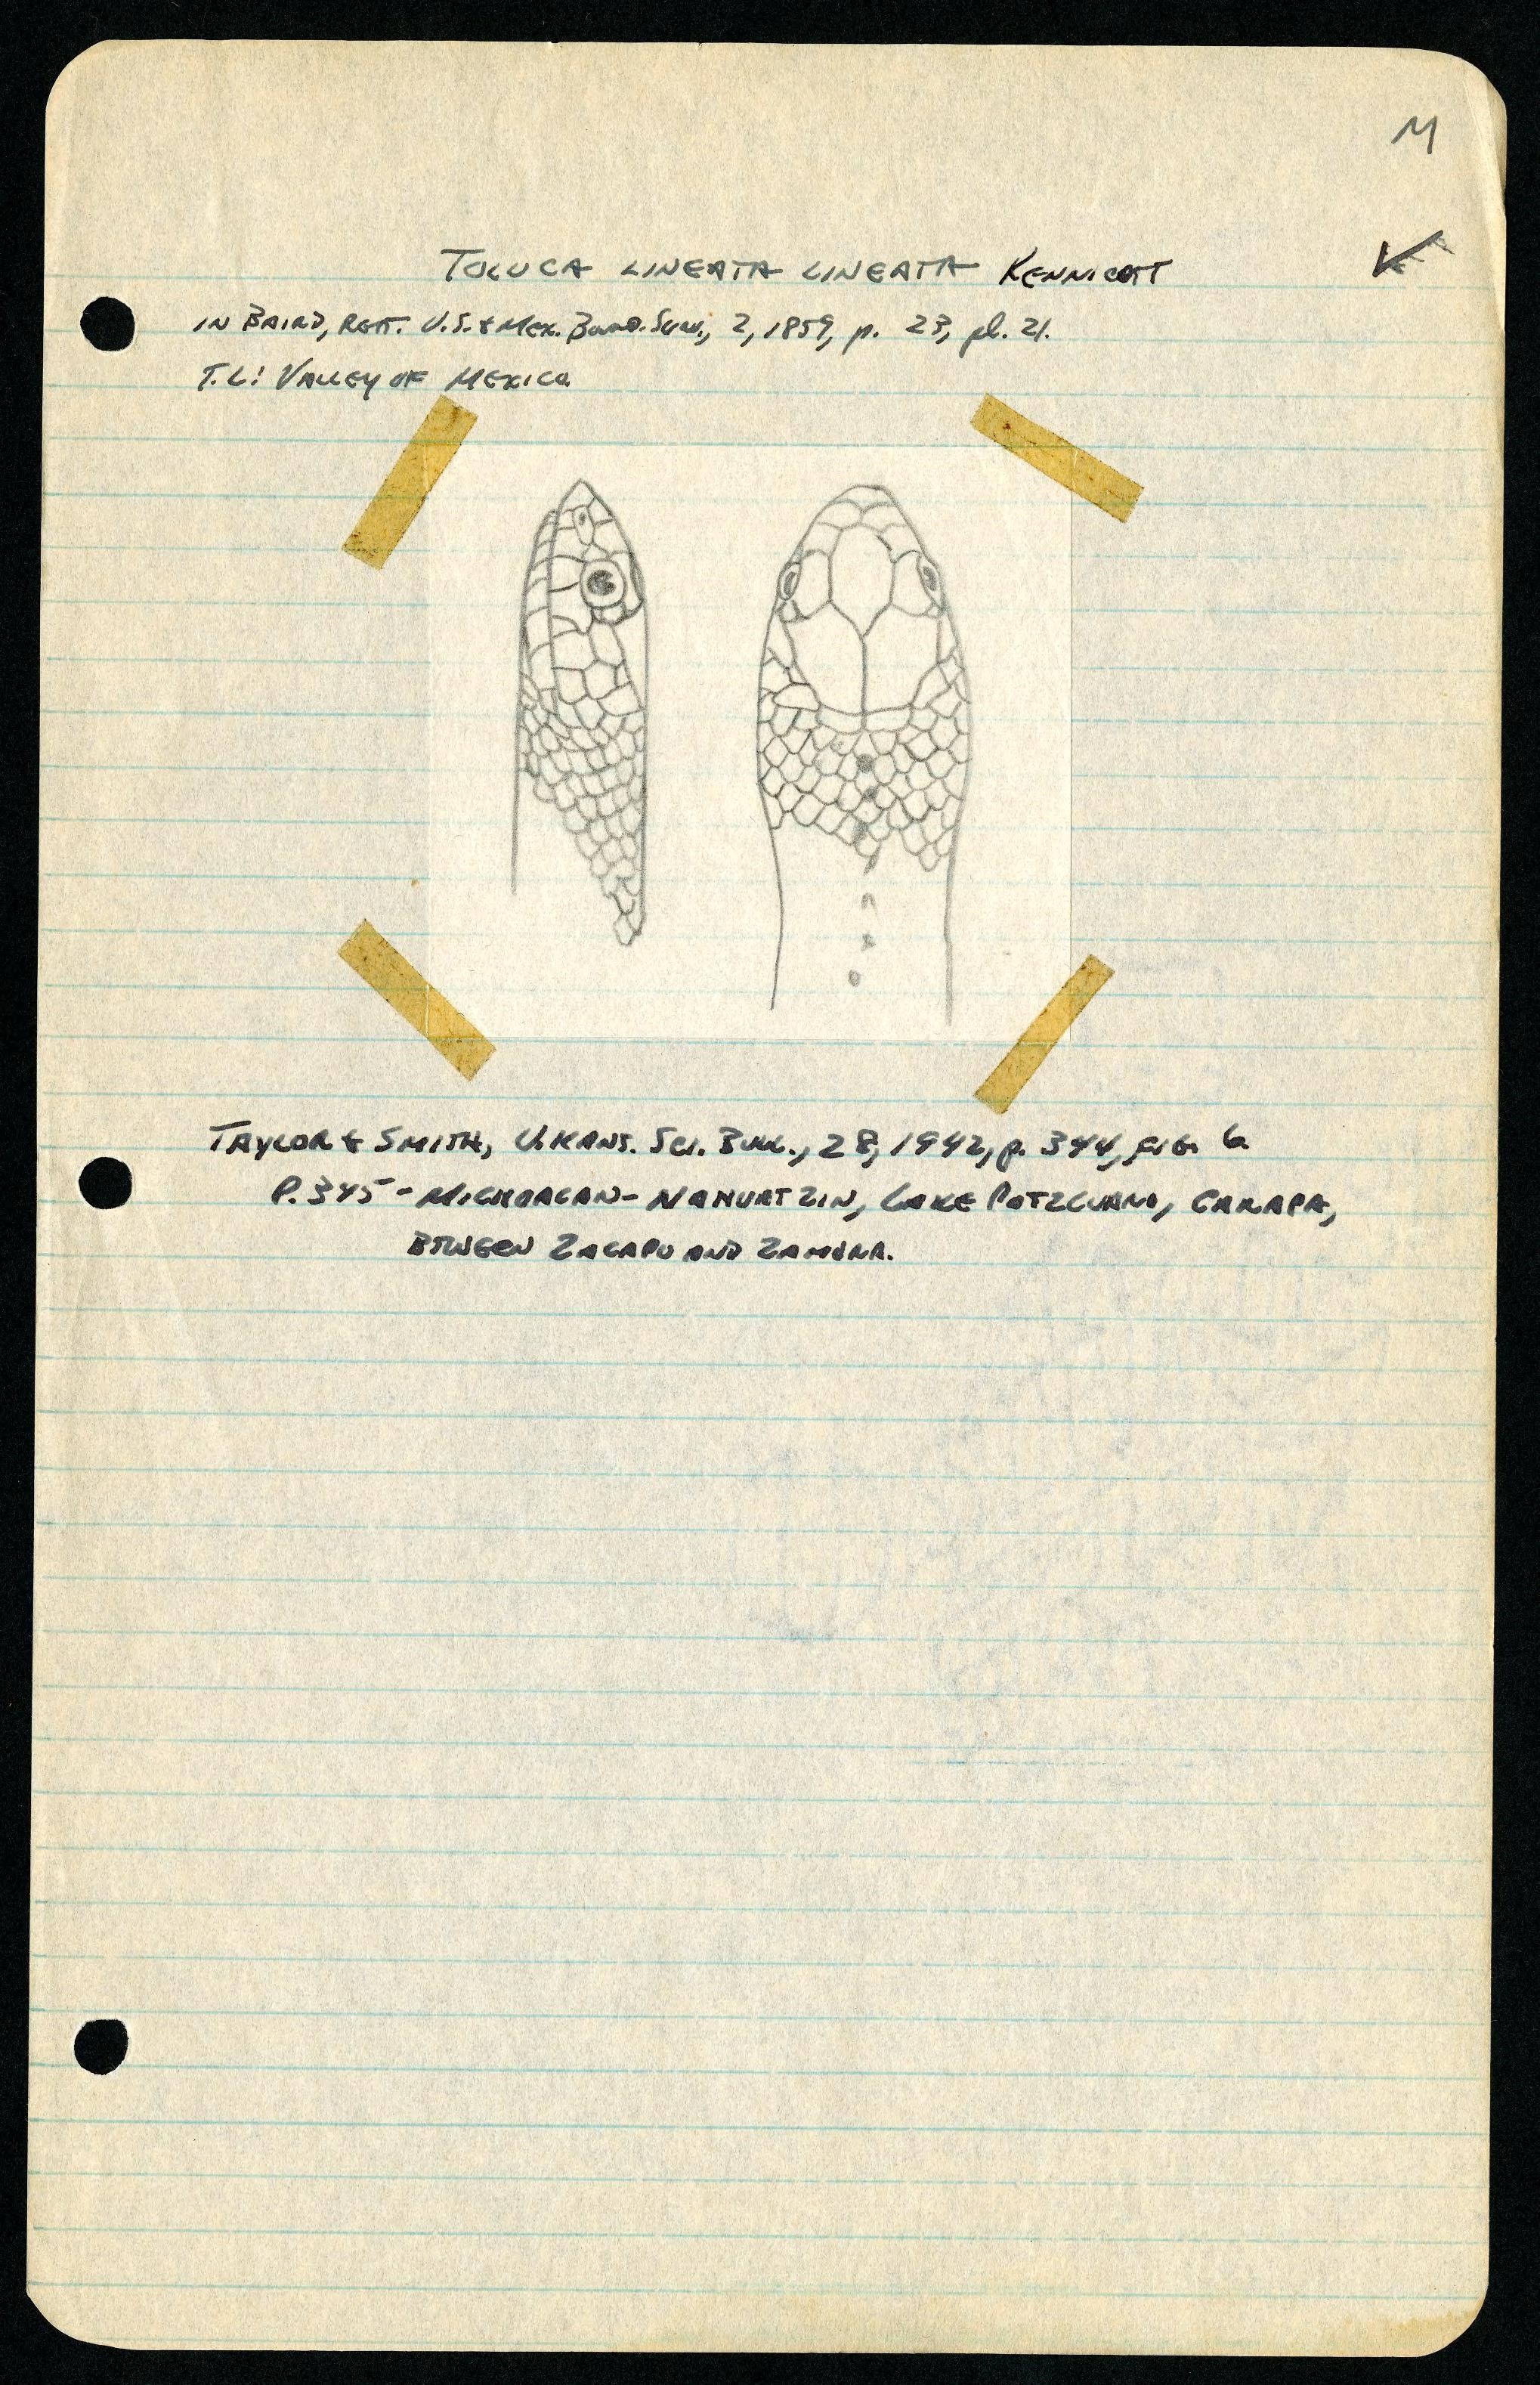 M
TOLUCA LINEATA LINEATA KENNICOTT
IN BAIRD, REPT. U.S. & MEX. BOUND. SURV., 2, 1859, p. 23, pl. 21.
T.L: VALLEY OF MEXICO
TAYLOR & SMITH, U. KANS. SCI. BULL., 28, 1942, p. 344, FIG. 6
P. 345 - MICHOACAN - NAHUATZIN, LAKE PATZCUARO, CARAPA,
BTWEEN ZACAPU AND ZAMORA.